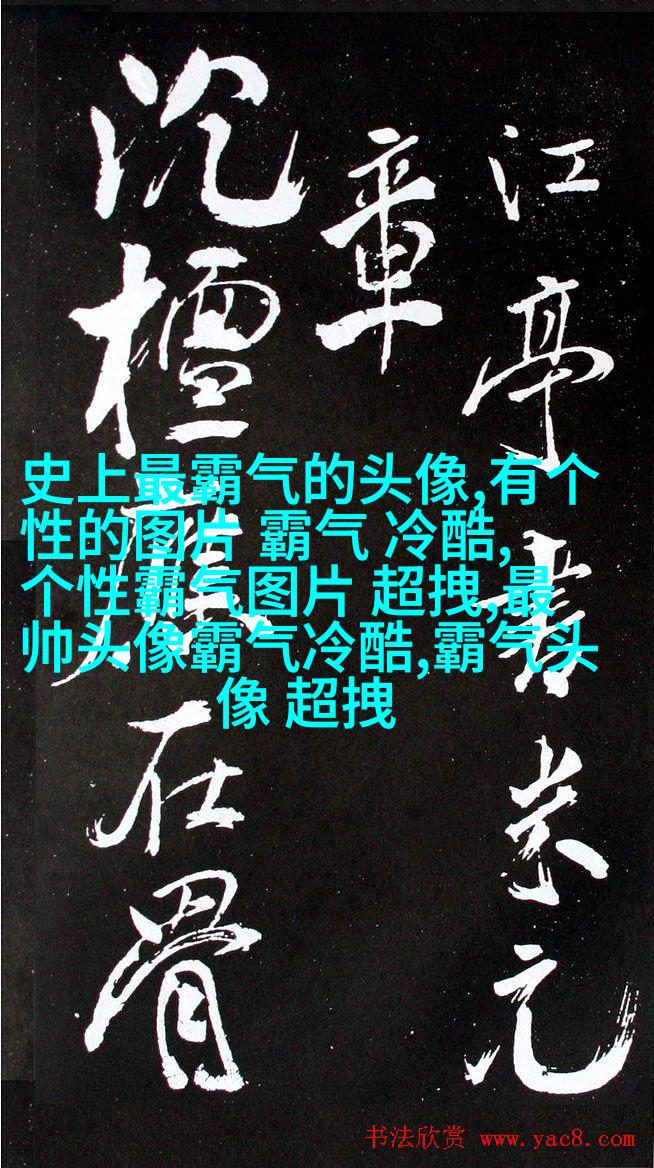 江亭書米元
章
沉檀在骨
史上最霸气的头像,有个
性的图片 霸气 冷酷,
个性霸气图片 超拽,最
帅头像霸气冷酷,霸气头
像 超拽
书法欣赏 www.yac8.com